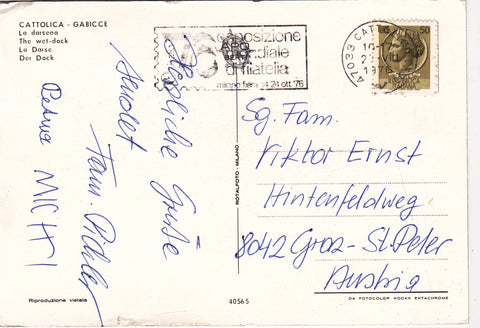 CATTOLICA - GABICCE
La darsena
The wet-dock
La Darse
Der Dock
esposizione
mondiale
di filatelia
milano fiera 14-24 ott. '76
47033 CATTOLICA
1976
50
Herzliche Grüße
sendet
Fam. Pichler
Petra MICHI
ROTALFOTO - MILANO
Sg. Fam.
Viktor Ernst
Hintenfeldweg
8042 Graz - St. Peter
Austria
Riproduzione vietata
40565
DA FOTOCOLOR KODAK EKTACHROME